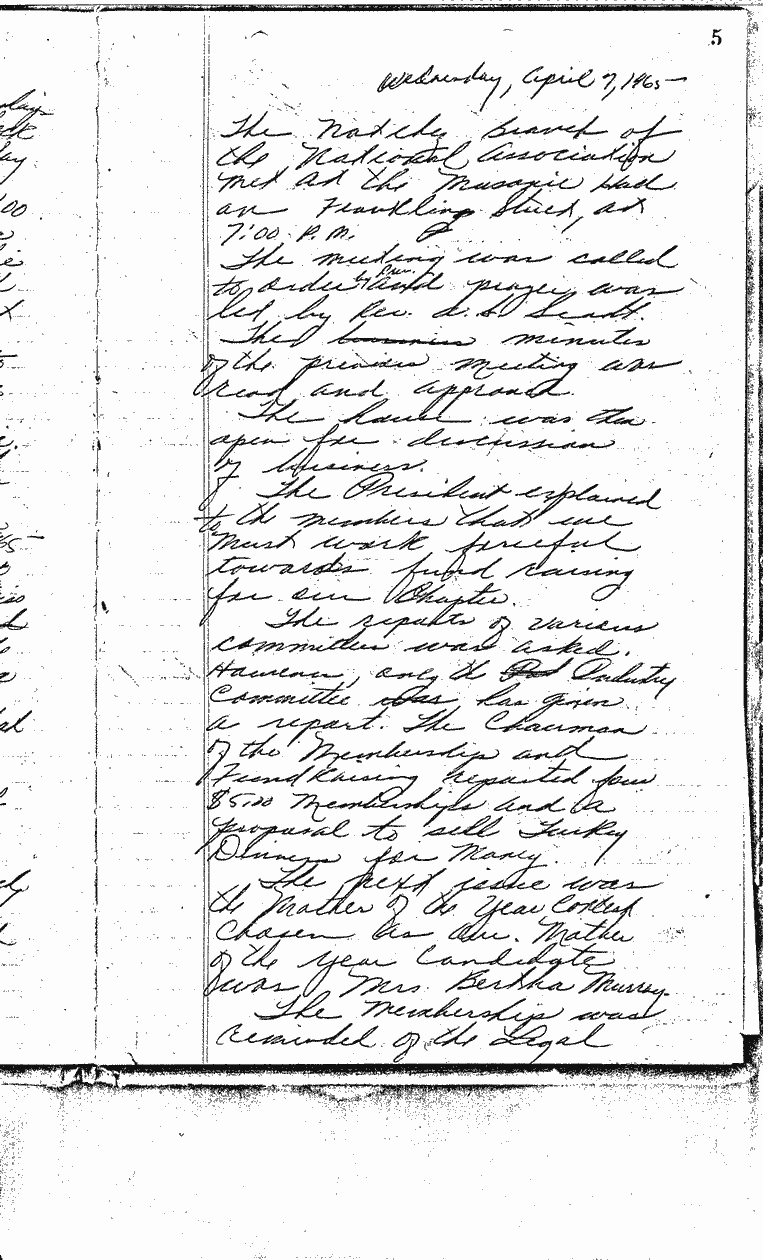 5
Wednesday, April 7, 1965
The Natchez Branch of
the National Association
met at the Masonic Hall
on Frankling Street, at
7:00 P.M.
The meeting was called
to order by Pres. and prayer was
led by Rev.
The business minutes
of the previous meeting was
read and approved.
The house was then
open for discussion
of business.
The President explained
to the members that we
must work forceful
towards fund raising
for our Chapter.
The reports of various
committees was asked.
However, only the Industry
Committee was has given
a report. The Chairman
of the Membership and
Fund Raising reported four
$5.00 Memberships and a
proposal to sell Turkey
Dinners for Money.
The next issue was
the Mother of the Year Contest
Chosen as Our Mother
of the year Candidate
was Mrs. Bertha Murray.
The Membership was
reminded of the Legal